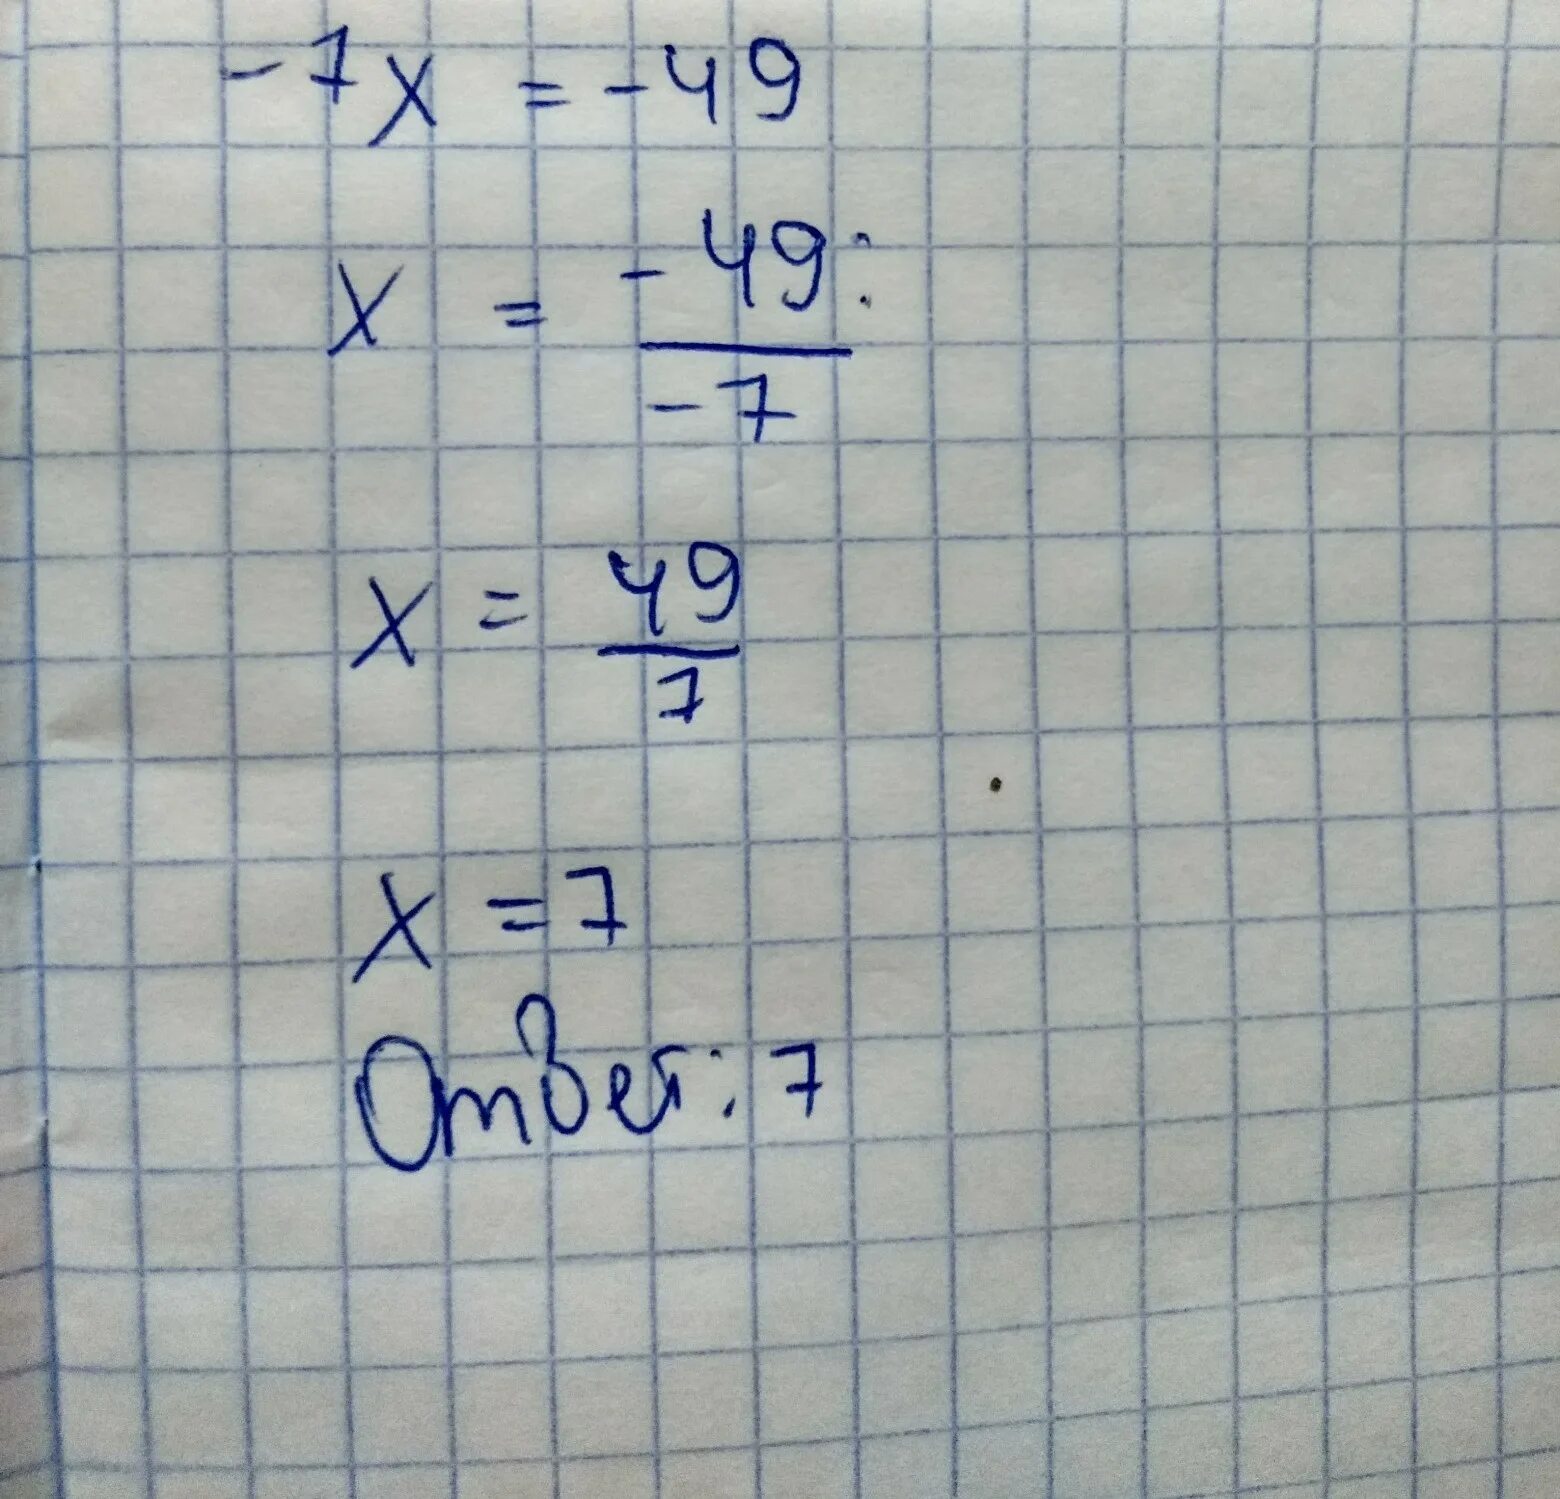 -7x = -49
x = -49:
-7
x = 49
7
x = 7
Ответ: 7